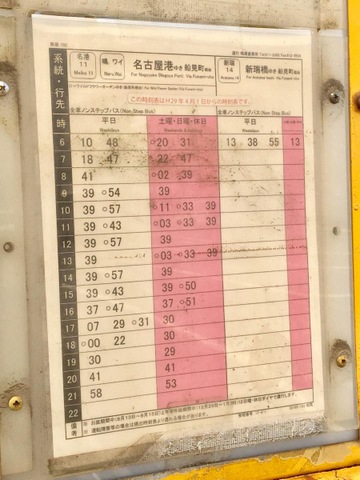 系統・行先
名港 11 Meiko 11
鳴、ワイ
名古屋港ゆき 船見町経由
For Nagoyako (Nagoya Port) Via Funami-cho
新瑞 14
新瑞橋ゆき 船見町
この時刻表はH29年4月1日からの時刻表です。
全車ノンステップバス(Non Step Bus) 全車ノンステップバス(Non Step Bus)
時 平日 土曜・日曜・休日 平日
Weekdays
6 10 48 ○20 31 13 38 55 13
7 18 ○47 22 ○47
8 41 ○02 ○39
9 39 ○54 39
10 39 ○47 ○11 ○33 39
11 39 ○43 ○03 ○33 39
12 39 ○57 39
13 39 ○03 ○33 39
14 39 ○57 39
15 39 ○43 39 ○50
16 37 ○47 39 ○51
17 07 29 ○31 30
18 ○00 22 30
19 30 29
20 41 41
21 58 53
22